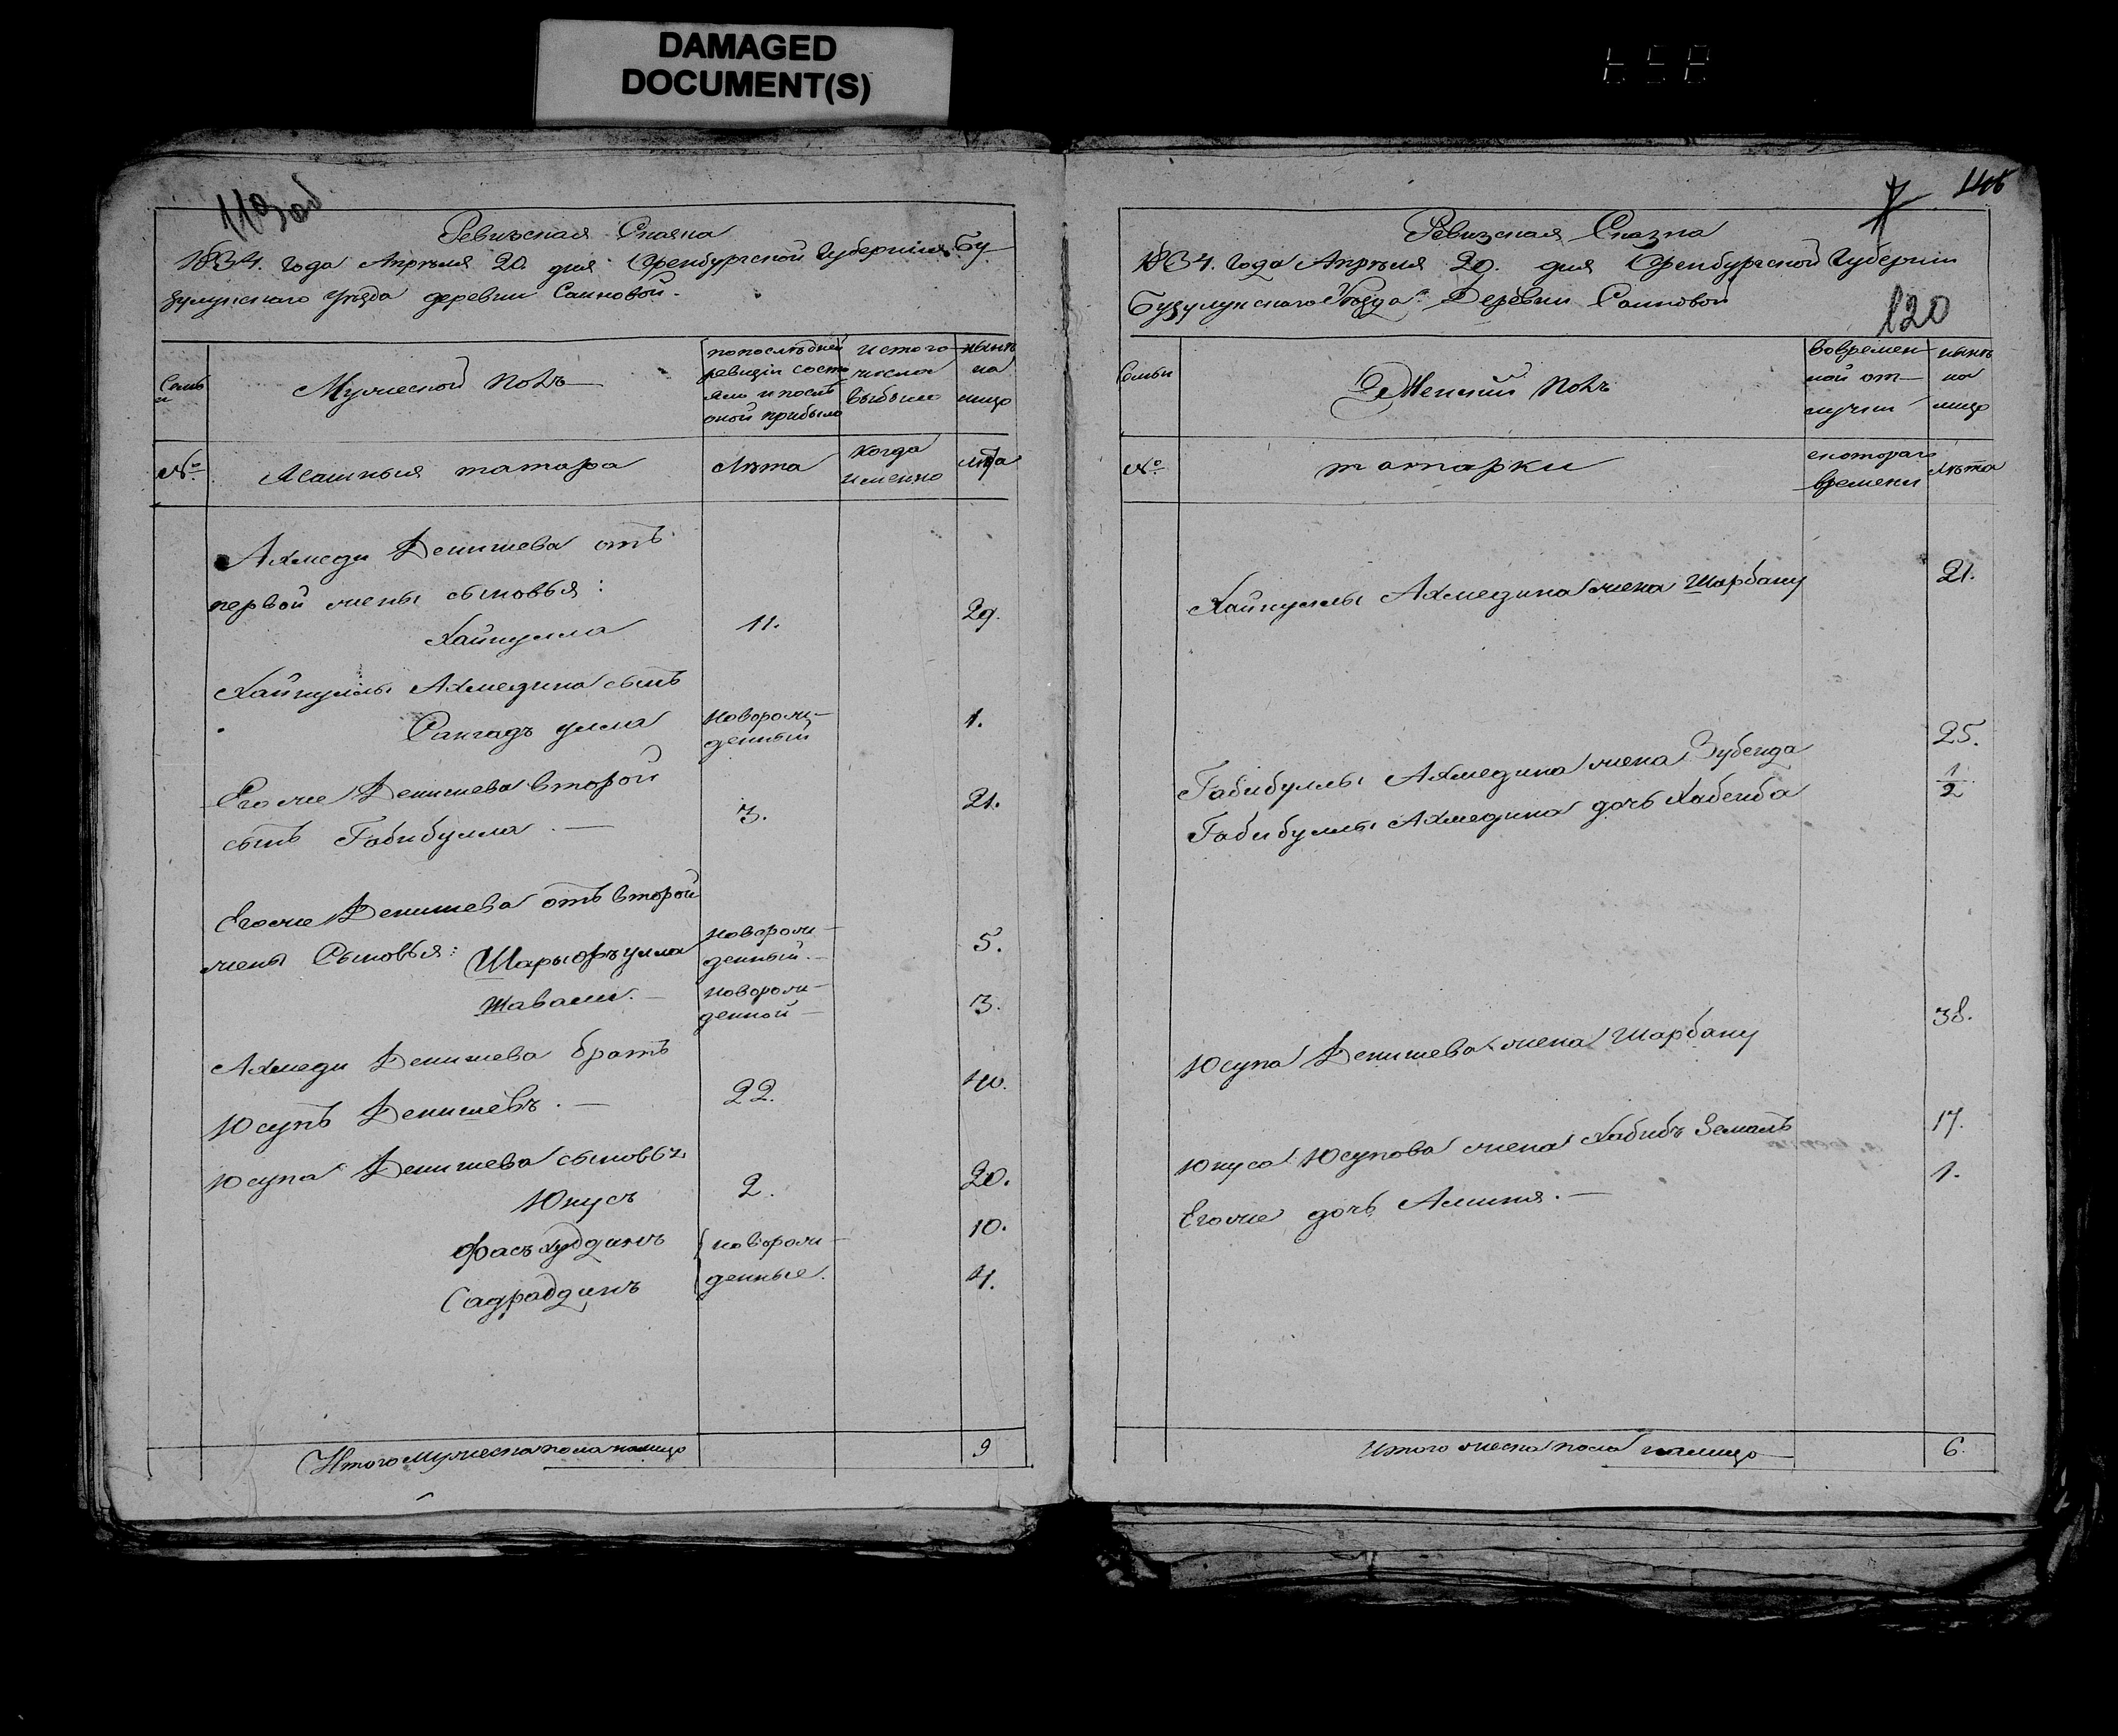 DAMAGED
DOCUMENT(S)
119 об
Ревизская Сказка
1834. года Апреля 20. дня Оренбургской Губернии Бу
зулукскаго уезда деревни Саиновой.
Семьи
Мужеской полъ
попоследней
ревизіи состо
яло и после
оной прибыло
изтого
числа
выбыло
ныне
на
лицо
№
Ясашныя татара
Лета
когда
именно
лета
Ахмеди Денишева отъ
первой жены сыновья:
Хайнулла
11.
29.
Хайнуллы Ахмедина сынъ
улла
новорож
денный
1.
Егоже Денишева второй
сынъ Габибулла.
3.
21.
Егоже Денишева отъ второй
жены Сыновья: Шарыфъулла
новорож
денный
5.
Шавали.
новорож
денной
3.
Ахмеди Денишева братъ
Юсупъ Денишевъ.
22.
40.
Юсупа Денишева сыновья
Юнусъ
2.
20.
Фасъхудзинъ
новорож
10.
Садрадзинъ
денные.
4.
Итого мужеска пола налицо
9
146
Ревизская Сказка
1834. Года Апреля 20. дня Оренбургской Губернии
Бузулукскаго Уезда Деревни Саиновой
120
Семьи
Женский полъ
вовремен
ной от
лучки
ныне
на
лицо
№
татарки
скотораго
времени
лета
Хайнуллы Ахмедина жена Шарбану
21.
Габибуллы Ахмедина жена Зубеида
25.
Габибуллы Ахмедина дочь Хабиба
1/2
Юсупа Денишева жена Шарбану
38.
Юнуса Юсупова жена Хабибъ Земалъ
17.
Егоже дочь Алиша.
1.
Итого женска пола налицо
6.